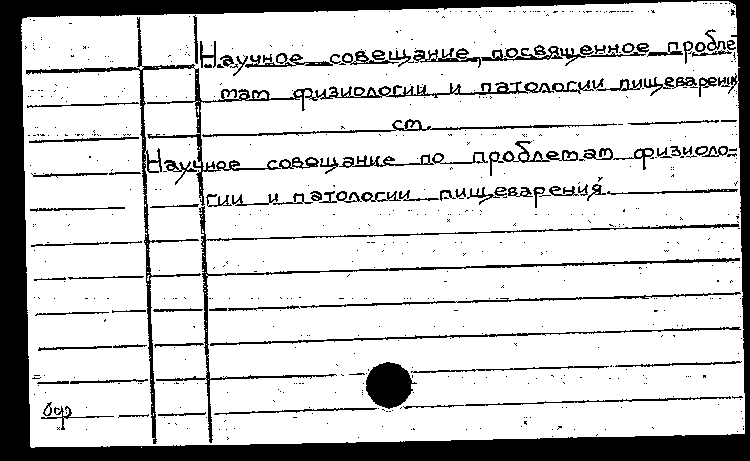 Научное совещание, посвященное пробле
мам физиологии и патологии пищеварения
см.
Научное совещание по проблемам физиоло=
гии и патологии пищеварения.